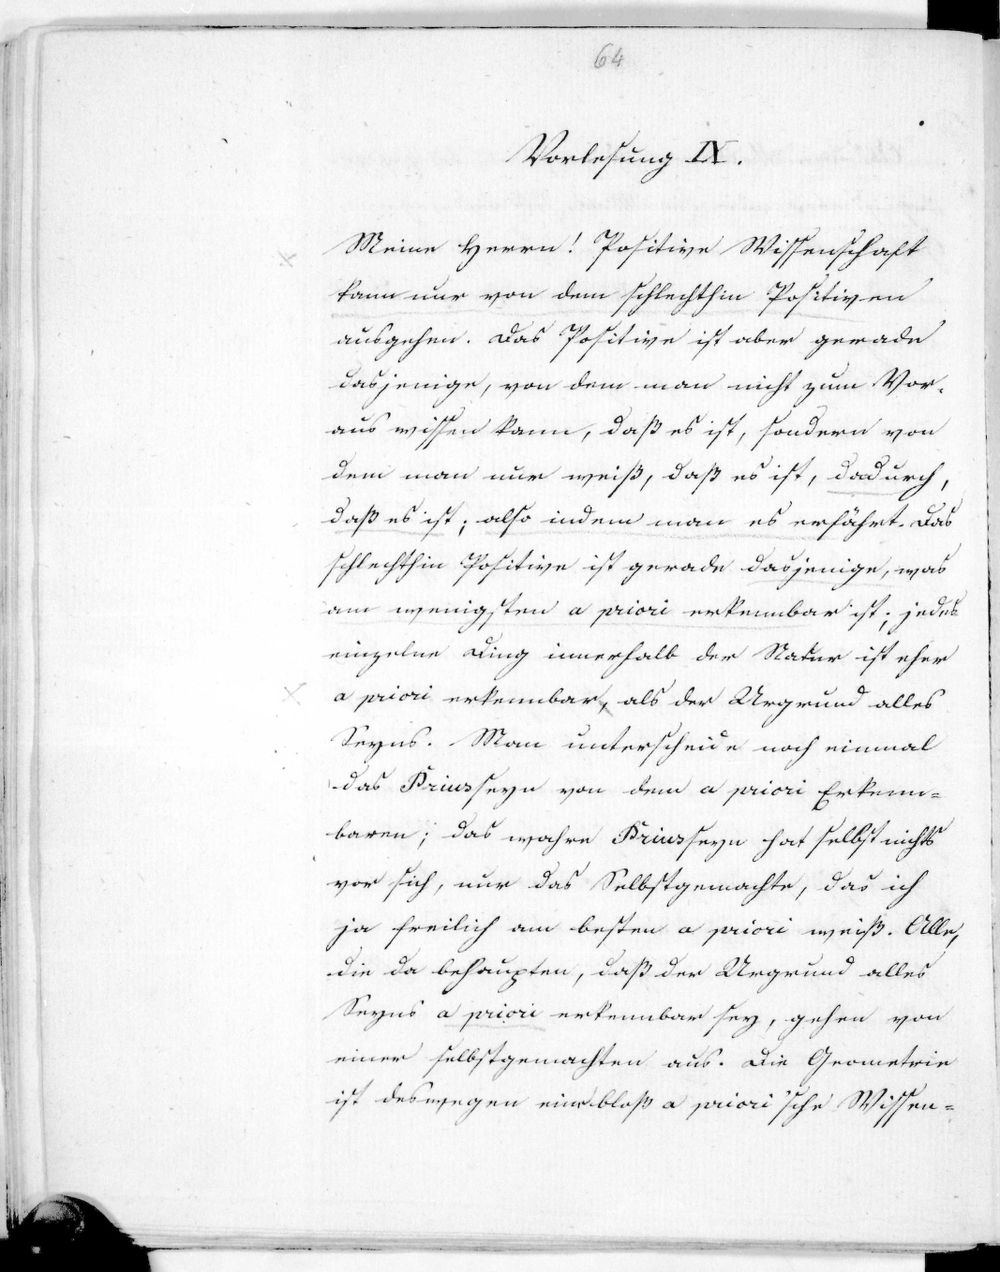 64
Vorlesung IX.
Meine Herrn! Positive Wissenschaft
kann nur von dem schlechthin Positiven
ausgehen. Das Positive ist aber gerade
dasjenige, von dem man nicht zum Vor-
aus wissen kann, daß es ist, sondern von
dem man nur weiß, daß es ist, dadurch,
daß es ist; also indem man es erfährt. Das
schlechthin Positive ist gerade dasjenige, was
am wenigsten a priori erkennbar ist; jedes
einzelne Ding innerhalb der Natur ist eher
a priori erkennbar, als der Urgrund alles
Seyns. Man unterscheide noch einmal
das Priusseyn von dem a priori Erkenn=
baren; das wahre Priusseyn hat selbst nichts
vor sich, nur das Selbstgemachte, das ich
ja freilich am besten a priori weiß. Alle,
die da behaupten, daß der Urgrund alles
Seyns a priori erkennbar sey, gehen von
einer selbstgemachten aus. Die Geometrie
ist deswegen eine bloß a priori'sche Wissen=